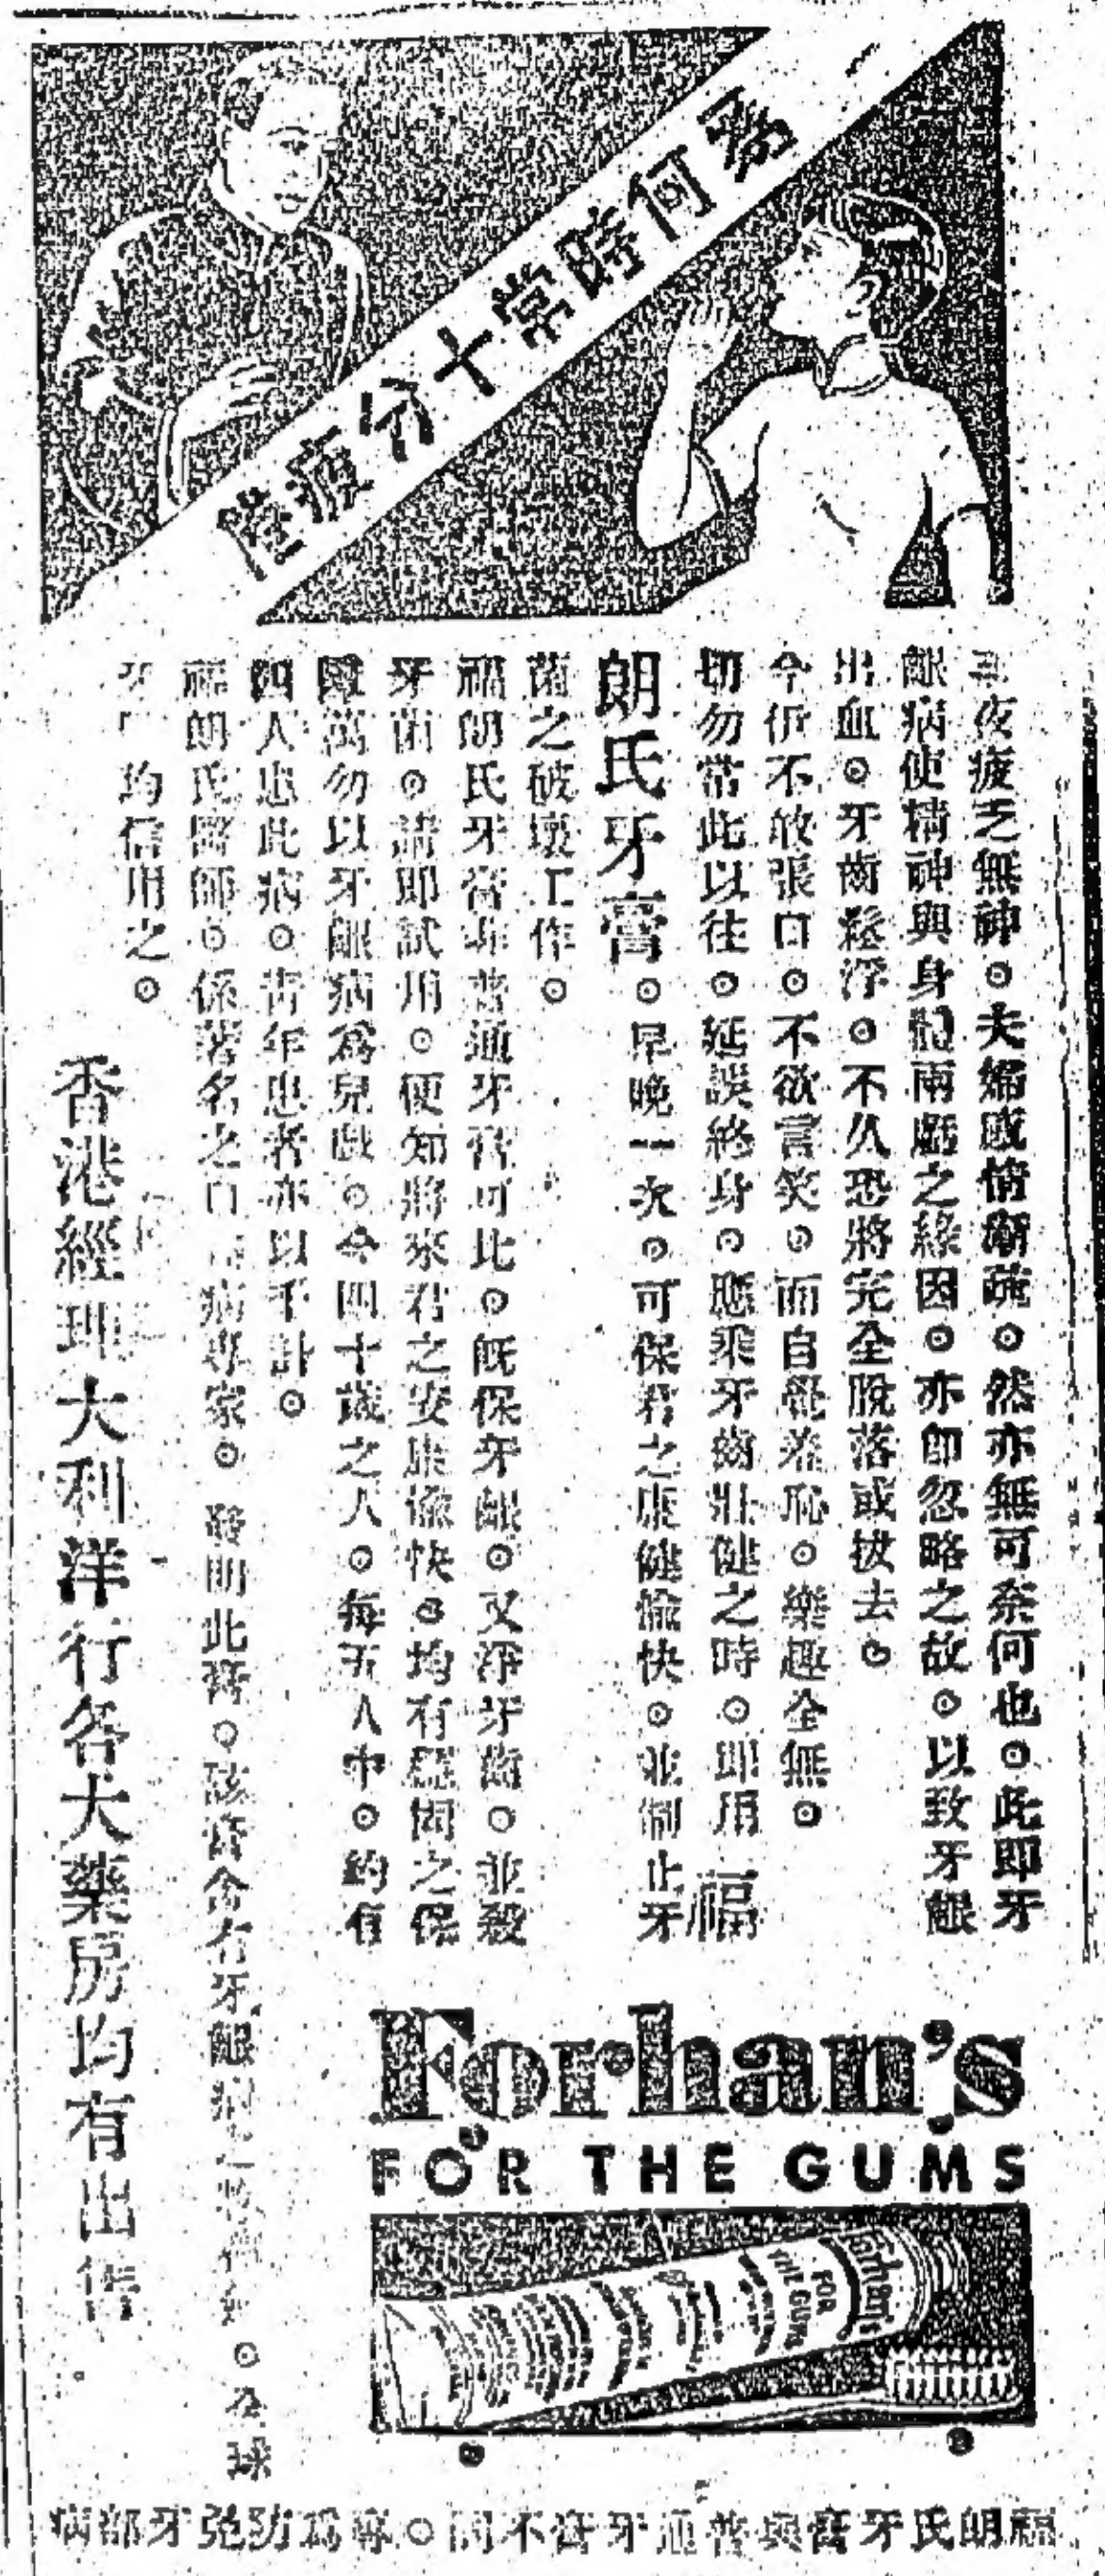 爲何時常十分疲倦
夜疲乏無神⊙夫婦感情漸疏⊙然亦無可奈何也⊙此即牙
齦病使精神與身體兩虧之緣因⊙亦即忽略之故⊙以致牙齦
出血⊙牙齒鬆浮⊙不久恐將完全脫落或拔去⊙
今仍不敢張口⊙不欲言笑⊙而自覺羞恥⊙樂趣全無⊙
切勿常此以往⊙延誤終身⊙應乘牙齒壯健之時⊙即用福
朗氏牙膏⊙早晚一次⊙可保君之康健愉快⊙並制止牙
菌之破壞工作⊙
福朗氏牙膏非普通牙膏可比⊙既保牙齦⊙又淨牙齒⊙並殺
牙菌⊙請即試用⊙便知將來君之安康愉快⊙均有穩固之保
萬勿以牙齦病爲兒戲⊙今四十歲之人⊙每五人中⊙約有
四人患此病⊙青年患者亦以千計⊙
福朗氏醫師⊙係著名之 病專家⊙發明此膏⊙該膏含有牙齦 ⊙全球
均信用之⊙
香港經理大利洋行各大藥房均有出售
Forhan's
FOR THE GUMS
Forhan's
FOR
THE GUMS
福朗氏牙膏與普通牙膏不同⊙專爲防免牙部病